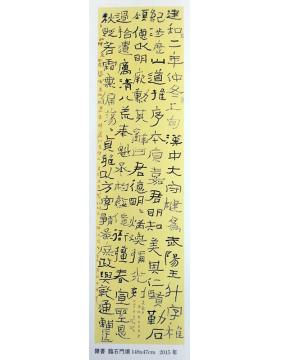 建和二年仲冬上旬漢中大守犍為武陽王升字稚
紀涉歷山道推序本原嘉君明知美其仁賢勒石
頌德以明厥勳其辭曰君德明明炳煥彌光刺
過拾遺厲清八荒奉魁承杓綏億衙彊春宣聖恩
秋貶若霜無偏蕩蕩貞雅以方寧靜烝庶政與乾通
隸書 臨石門頌 148x47cm 2015 年